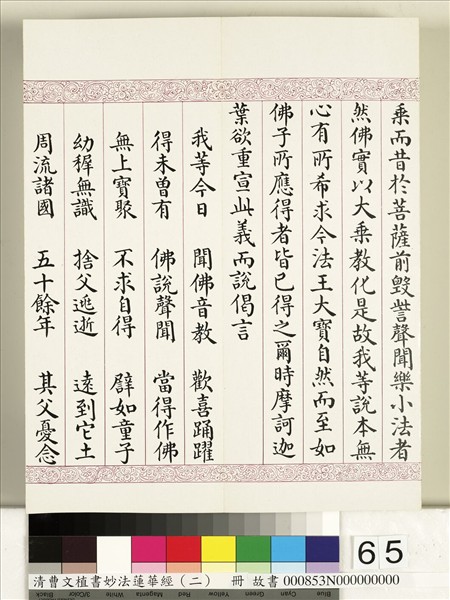 乘而昔於菩薩前毀訾聲聞樂小法者
然佛實以大乘教化是故我等說本無
心有所希求今法王大寶自然而至如
佛子所應得者皆已得之爾時摩訶迦
葉欲重宣此義而說偈言
我等今日 聞佛音教 歡喜踊躍
得未曾有 佛說聲聞 當得作佛
無上寶聚 不求自得 譬如童子
幼稺無識 捨父逃逝 遠到它土
周流諸國 五十餘年 其父憂念
65
Black 3/Color White Magenta Red Yellow Green Cyan Blue
清曹文植書妙法蓮華經（二） 冊 故書 000853N000000000